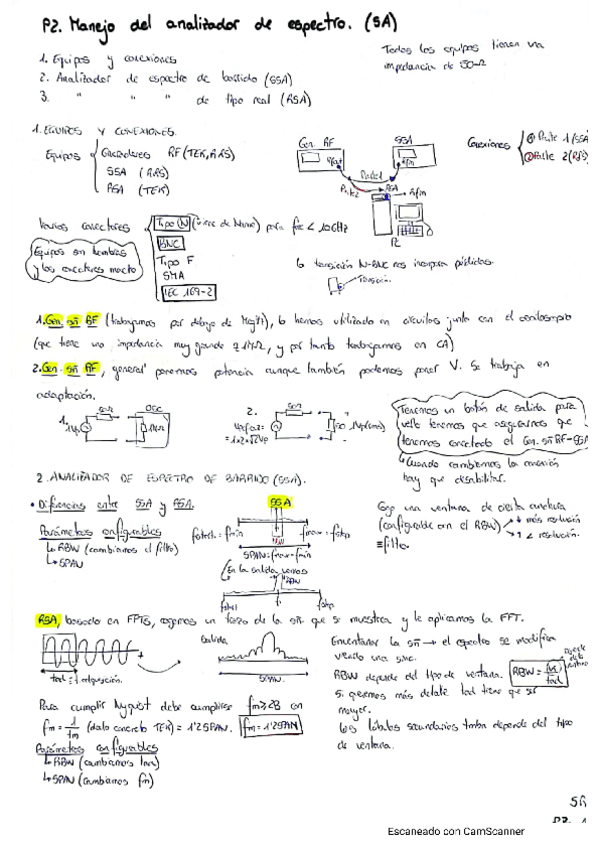 P2. Manejo del analizador de espectro. (SA)
1. Equipos y conexiones
2. Analizador de espectro de barrido (SSA)
3. " " " de tipo real (RSA)
Todos los equipos tienen una
impedancia de 50Ω
1. EQUIPOS Y CONEXIONES.
Equipos
Generadores RF (TEK, R&S)
SSA (R&S)
RSA (TEK)
Gen. RF
SSA
Parte1
Parte2
RSA
PC
Conexiones
① Parte 1 (SSA
② Parte 2 (RS
Varios conectores
Tipo N (viene de Navy) para fas < 10GHz
BNC
Tipo F
SMA
IEC 169-2
Equipos son hembras
y los conectores macho
la transición N-BNC nos incorpora pérdidas.
Transición.
1. Gen. sñ BF (trabajamos por debajo de MgHz), lo hemos utilizado en circuitos junto con el osciloscopio
(que tiene una impedancia muy grande 1MΩ, y por tanto trabajamos en CA)
2. Gen. sñ RF, general ponemos potencia aunque también podemos poner V. Se trabaja en
adaptación.
1.
50Ω
OSC
1Vp
1MΩ
2.
50Ω
Tenemos un botón de salida para
ello tenemos que asegurarnos que
tenemos conectado el Gen. sñ RF-SSA
Cuando cambiemos la conexión
hay que desabilitar.
2. ANALIZADOR DE ESPECTRO DE BARRIDO (SSA).
• Diferencias entre SSA y RSA.
SSA
Parámetros configurables
RBW (cambiamos el filtro)
SPAN
fstart = fmin
fmax = fstop
SPAN = fmax - fmin
En la salida vemos
RBW
fstart
f
fstop
Cojo una ventana de cierta anchura
(configurable con el RBW)
↓ más resolución
↑ < resolución.
≡ filtro.
RSA, basado en FFTs, cogemos un trozo de la sñ que se muestrea y le aplicamos la FFT.
Salida
tad = 1 adquisición.
SPAN.
Enventanar la sñ → el espectro se modifica
viendo una sinc.
RBW depende del tipo de ventana.
si queremos más detalle tad tiene que ser
mayor.
Los lóbulos secundarios tmbn depende del tipo
de ventana.
Para cumplir Nyquist debe cumplirse fm ≥ 2B en
(dato concreto TEK) = 1'25PAN.
fm = 1'25PAN
Parámetros configurables
RBW (cambiamos tad)
SPAN (cambiamos fm)
Escaneado con CamScanner